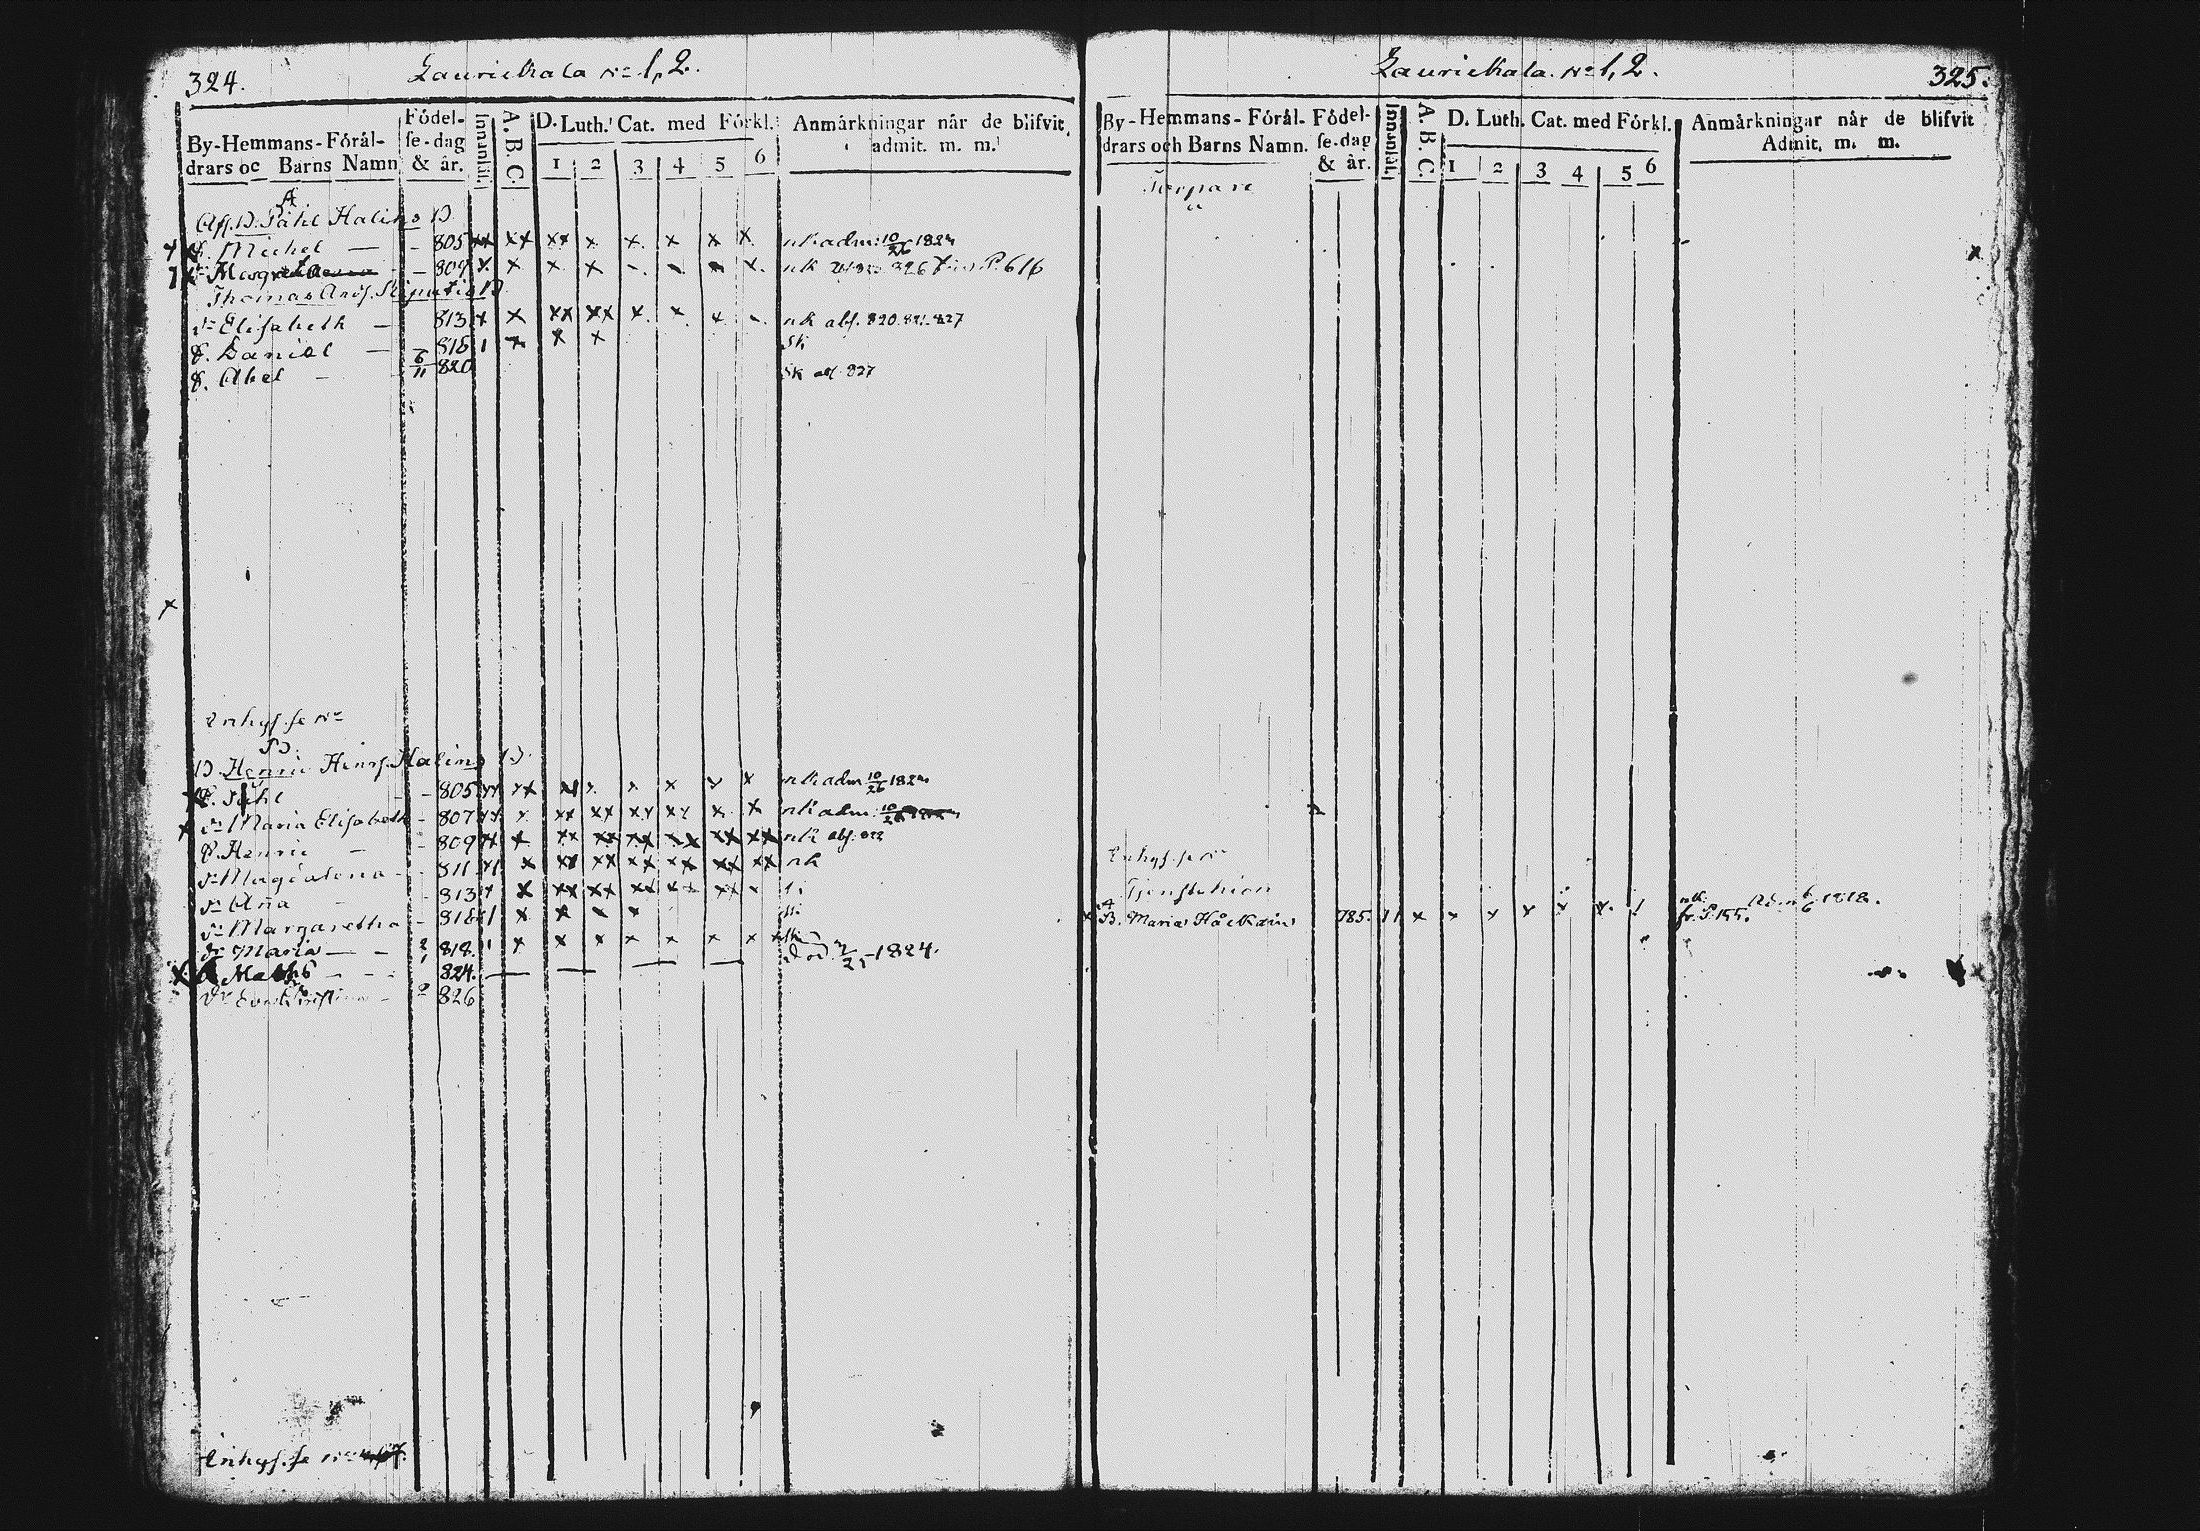 324.
Laurickala No 1, 2.
By-Hemmans-Föräl-
drars oc Barns Namn
Födel-
se-dag
& år.
Innanläs.
A. B. C.
D. Luth. Cat. med Förkl.
1 2 3 4 5 6
Anmärkningar när de blifvit
admit. m. m.
A
Afl. B. Påhl Halins B
S. Michel — - 805 xx xx xx x x x x x nk adm: 10/26 182
809 x x x x - - - x nk 326 P. 616
Thomas And. B
Dr Elisabeth — 813 x x xx xx x x x - nk abs. 820. 821. 827
S. Daniel — 818 1 x x x Sk
S. Abel - 6/11 820 Sk abs. 827
Enhyss. se No
B. Henric Henrs. Halins B.
S. Påhl - 805 xx xx xx x x x x x nk adm 10/26 182
Dr Maria Elisabeth - 807 xx x xx xx xx xx x x nk adm: 10/26
S. Henric - 809 x x xx xx xx xx xx xx nk abs. 822
Dr Magdalena - 811 x1 x xx xx xx xx xx xx nk
Dr Aña - 813 x x xx xx xx xx xx x
Dr Margaretha - 818 1 x x - x
Dr Maria — 818. 11 x x x x x x x sk
Maths - - - 824. — — — — död 1824.
Dr Eva Christina - 826
Enhyss. se No
325.
Laurickala. No 1, 2.
By-Hemmans-Föräl-
drars och Barns Namn.
Födel-
se-dag
& år.
Innanläs.
A. B. C.
D. Luth. Cat. med Förkl.
1 2 3 4 5 6
Anmärkningar när de blifvit
Admit. m. m.
Torpare
Enhyss. se No
Tjenstehion
B. Maria 785. 11 x x x x x x 1 nk. Adm 6/6 1818.
fr. P. 155.